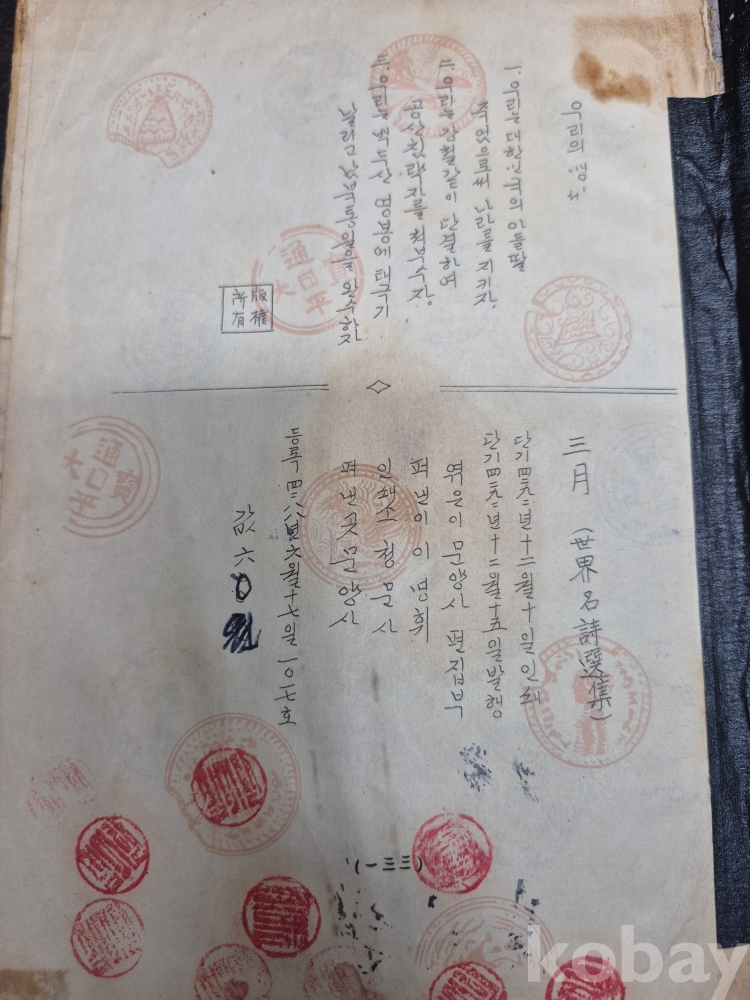 우리의 맹세
1. 우리는 대한민국의 아들딸
죽엄으로써 나라를 지키자.
2. 우리는 강철같이 단결하여
공산침략자를 쳐부수자.
3. 우리는 백두산 영봉에 태극기
날리고 남북통일을 완수하자
版權
所有
三月 (世界名詩選集)
단기四二九二년十二월十일인쇄
단기四二九二년十二월十五일발행
엮은이 문양사 편집부
펴낸이 이명휘
인쇄소 청문사
펴낸곳 문양사
등록 四二八八년六월十七일 一○七호
값 六0원
(一三三)
大平通寶
大平通寶
kobay